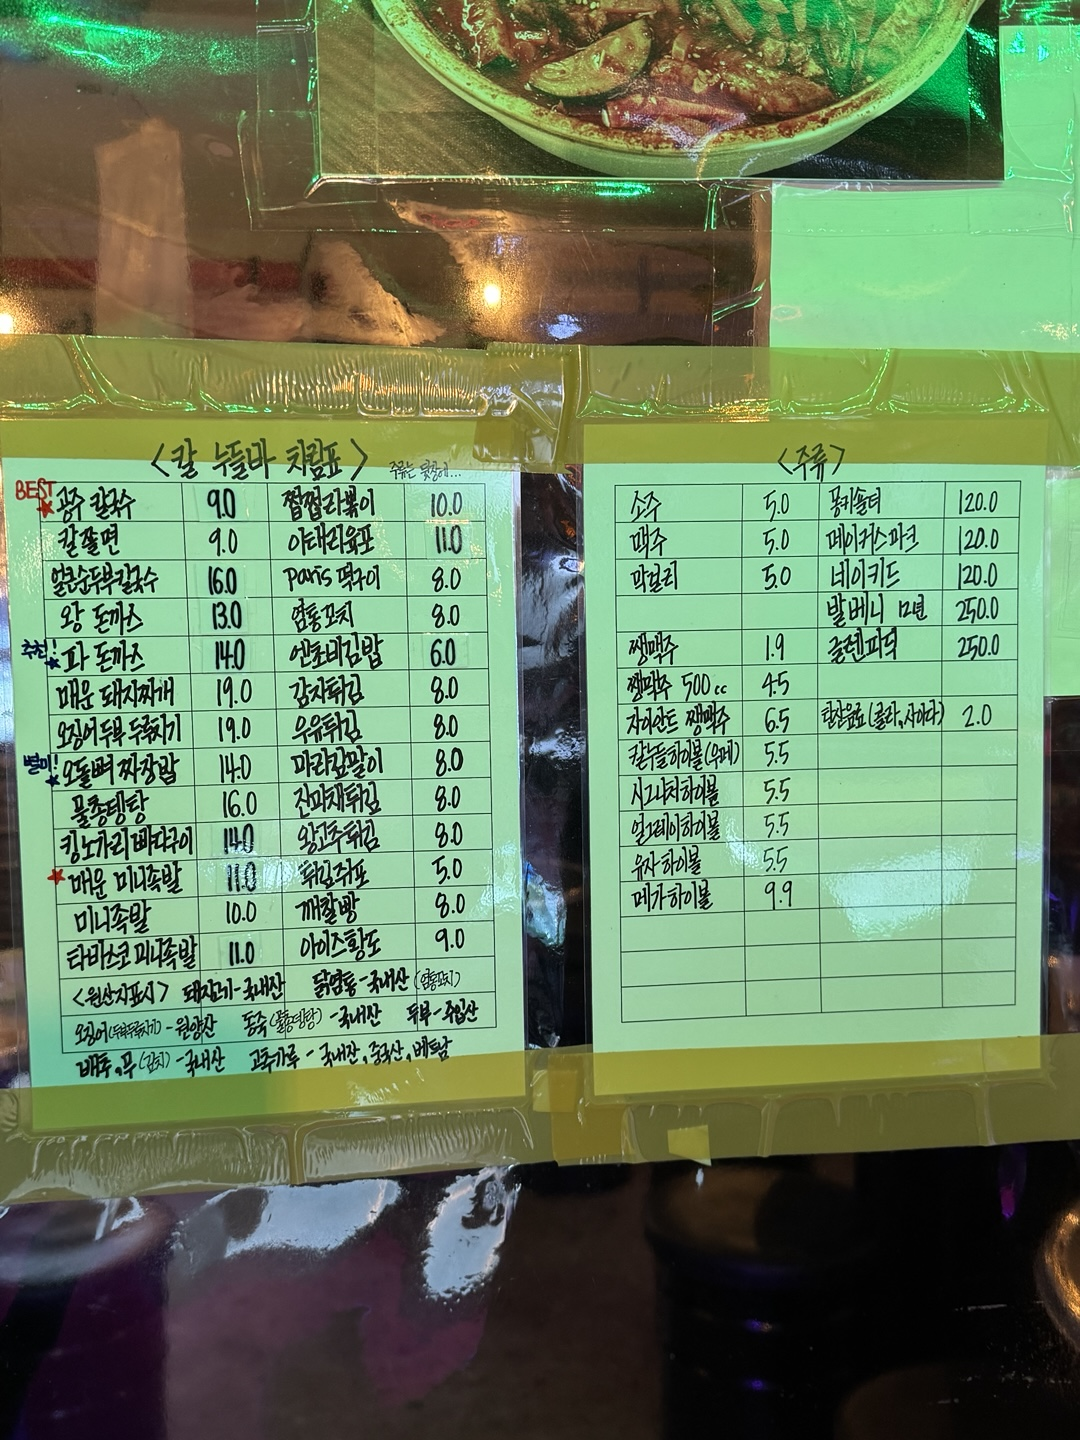 <칼 누들바 차림표>
주류는 뒷장에...
BEST 공주 칼국수 9.0 쩝쩝라볶이 10.0
칼쫄면 9.0 야태리육포 11.0
얼큰순두부칼국수 16.0 paris 떡구이 8.0
왕 돈까스 13.0 염통꼬치 8.0
추천! 파 돈까스 14.0 엔초비김밥 6.0
매운 돼지찌개 19.0 감자튀김 8.0
오징어두부 두루치기 19.0 우유튀김 8.0
별미! 오돌뼈 짜장밥 14.0 마라김말이 8.0
물총탱탕 16.0 잔파채튀김 8.0
킹노가리빠따구이 14.0 왕고추튀김 8.0
매운 미니족발 11.0 튀김쥐포 5.0
미니족발 10.0 깨찰빵 8.0
타바스코 미니족발 11.0 아이스황도 9.0
<원산지표시> 돼지고기-국내산 닭염통-국내산 (염통꼬치)
오징어(두부두루치기)-원양산 동죽(물총탱탕)-국내산 두부-수입산
배추,무(김치)-국내산 고춧가루-국내산,중국산,베트남
<주류>
소주 5.0 몽키숄더 120.0
맥주 5.0 메이커스마크 120.0
막걸리 5.0 네이키드 120.0
발베니 12년 250.0
쨍맥주 1.9 글렌피딕 250.0
쨍맥주 500cc 4.5
자이언트 쨍맥주 6.5 탄산음료(콜라,사이다) 2.0
칼누들하이볼 5.5
시그니처하이볼 5.5
얼그레이하이볼 5.5
유자하이볼 5.5
메가하이볼 9.9